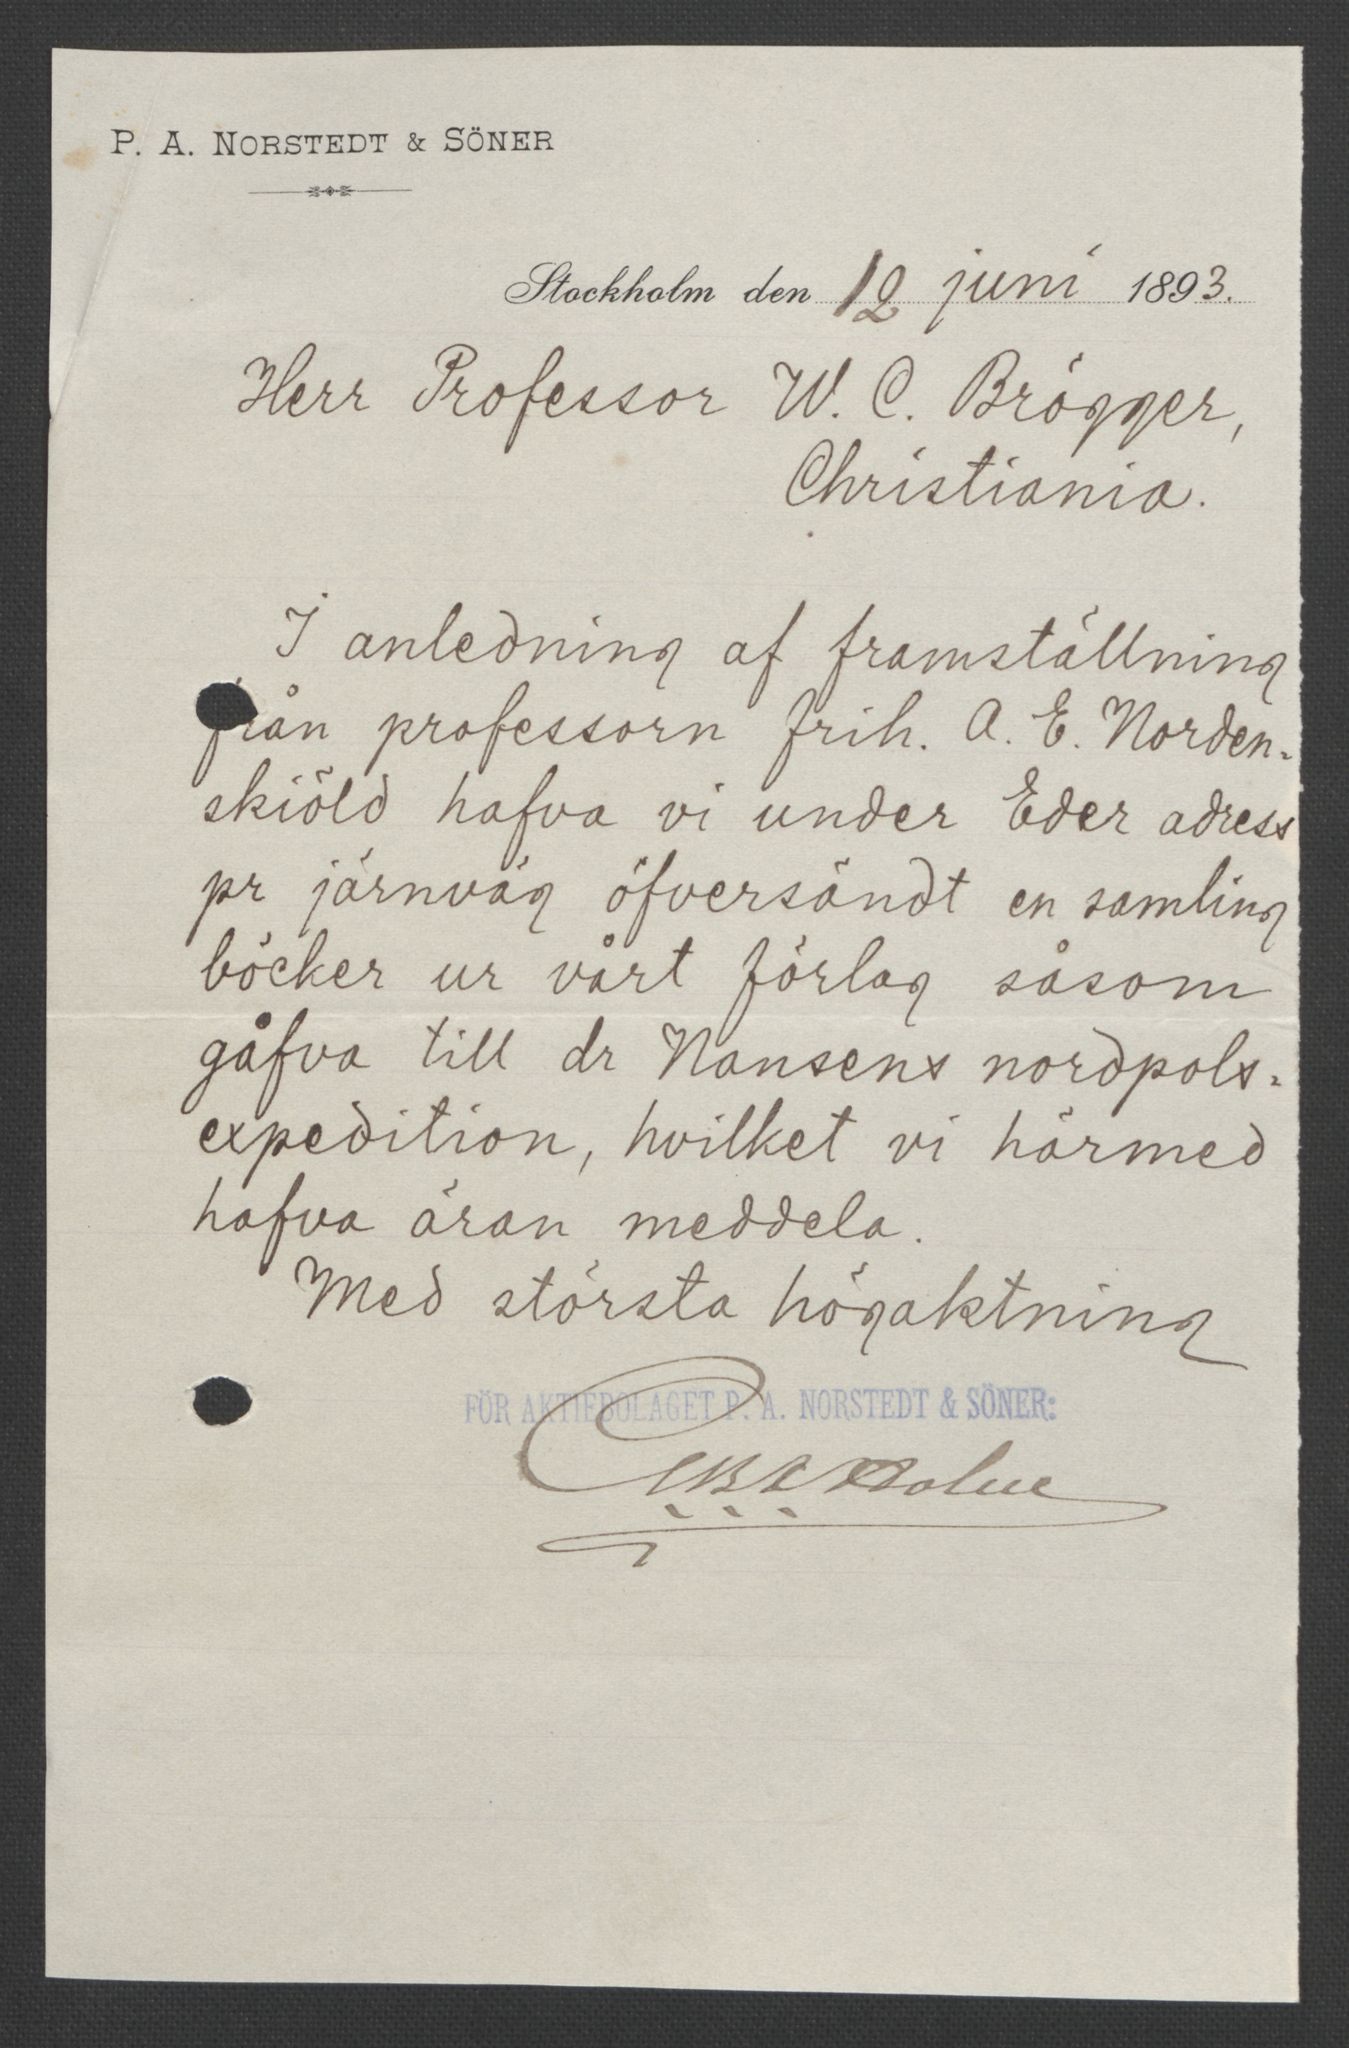 P. A. NORSTEDT & SÖNER
Stockholm den 12 juni 1893.
Herr Professor W. C. Brögger,
Christiania.
I anledning af framställning
från professorn frih. A. E. Norden-
skiöld hafva vi under Eder adress
pr järnväg öfversändt en samling
böcker ur vårt förlag såsom
gåfva till dr Nansens nordpols-
expedition, hvilket vi härmed
hafva äran meddela.
Med största högaktning
FÖR AKTIEBOLAGET P. A. NORSTEDT & SÖNER: